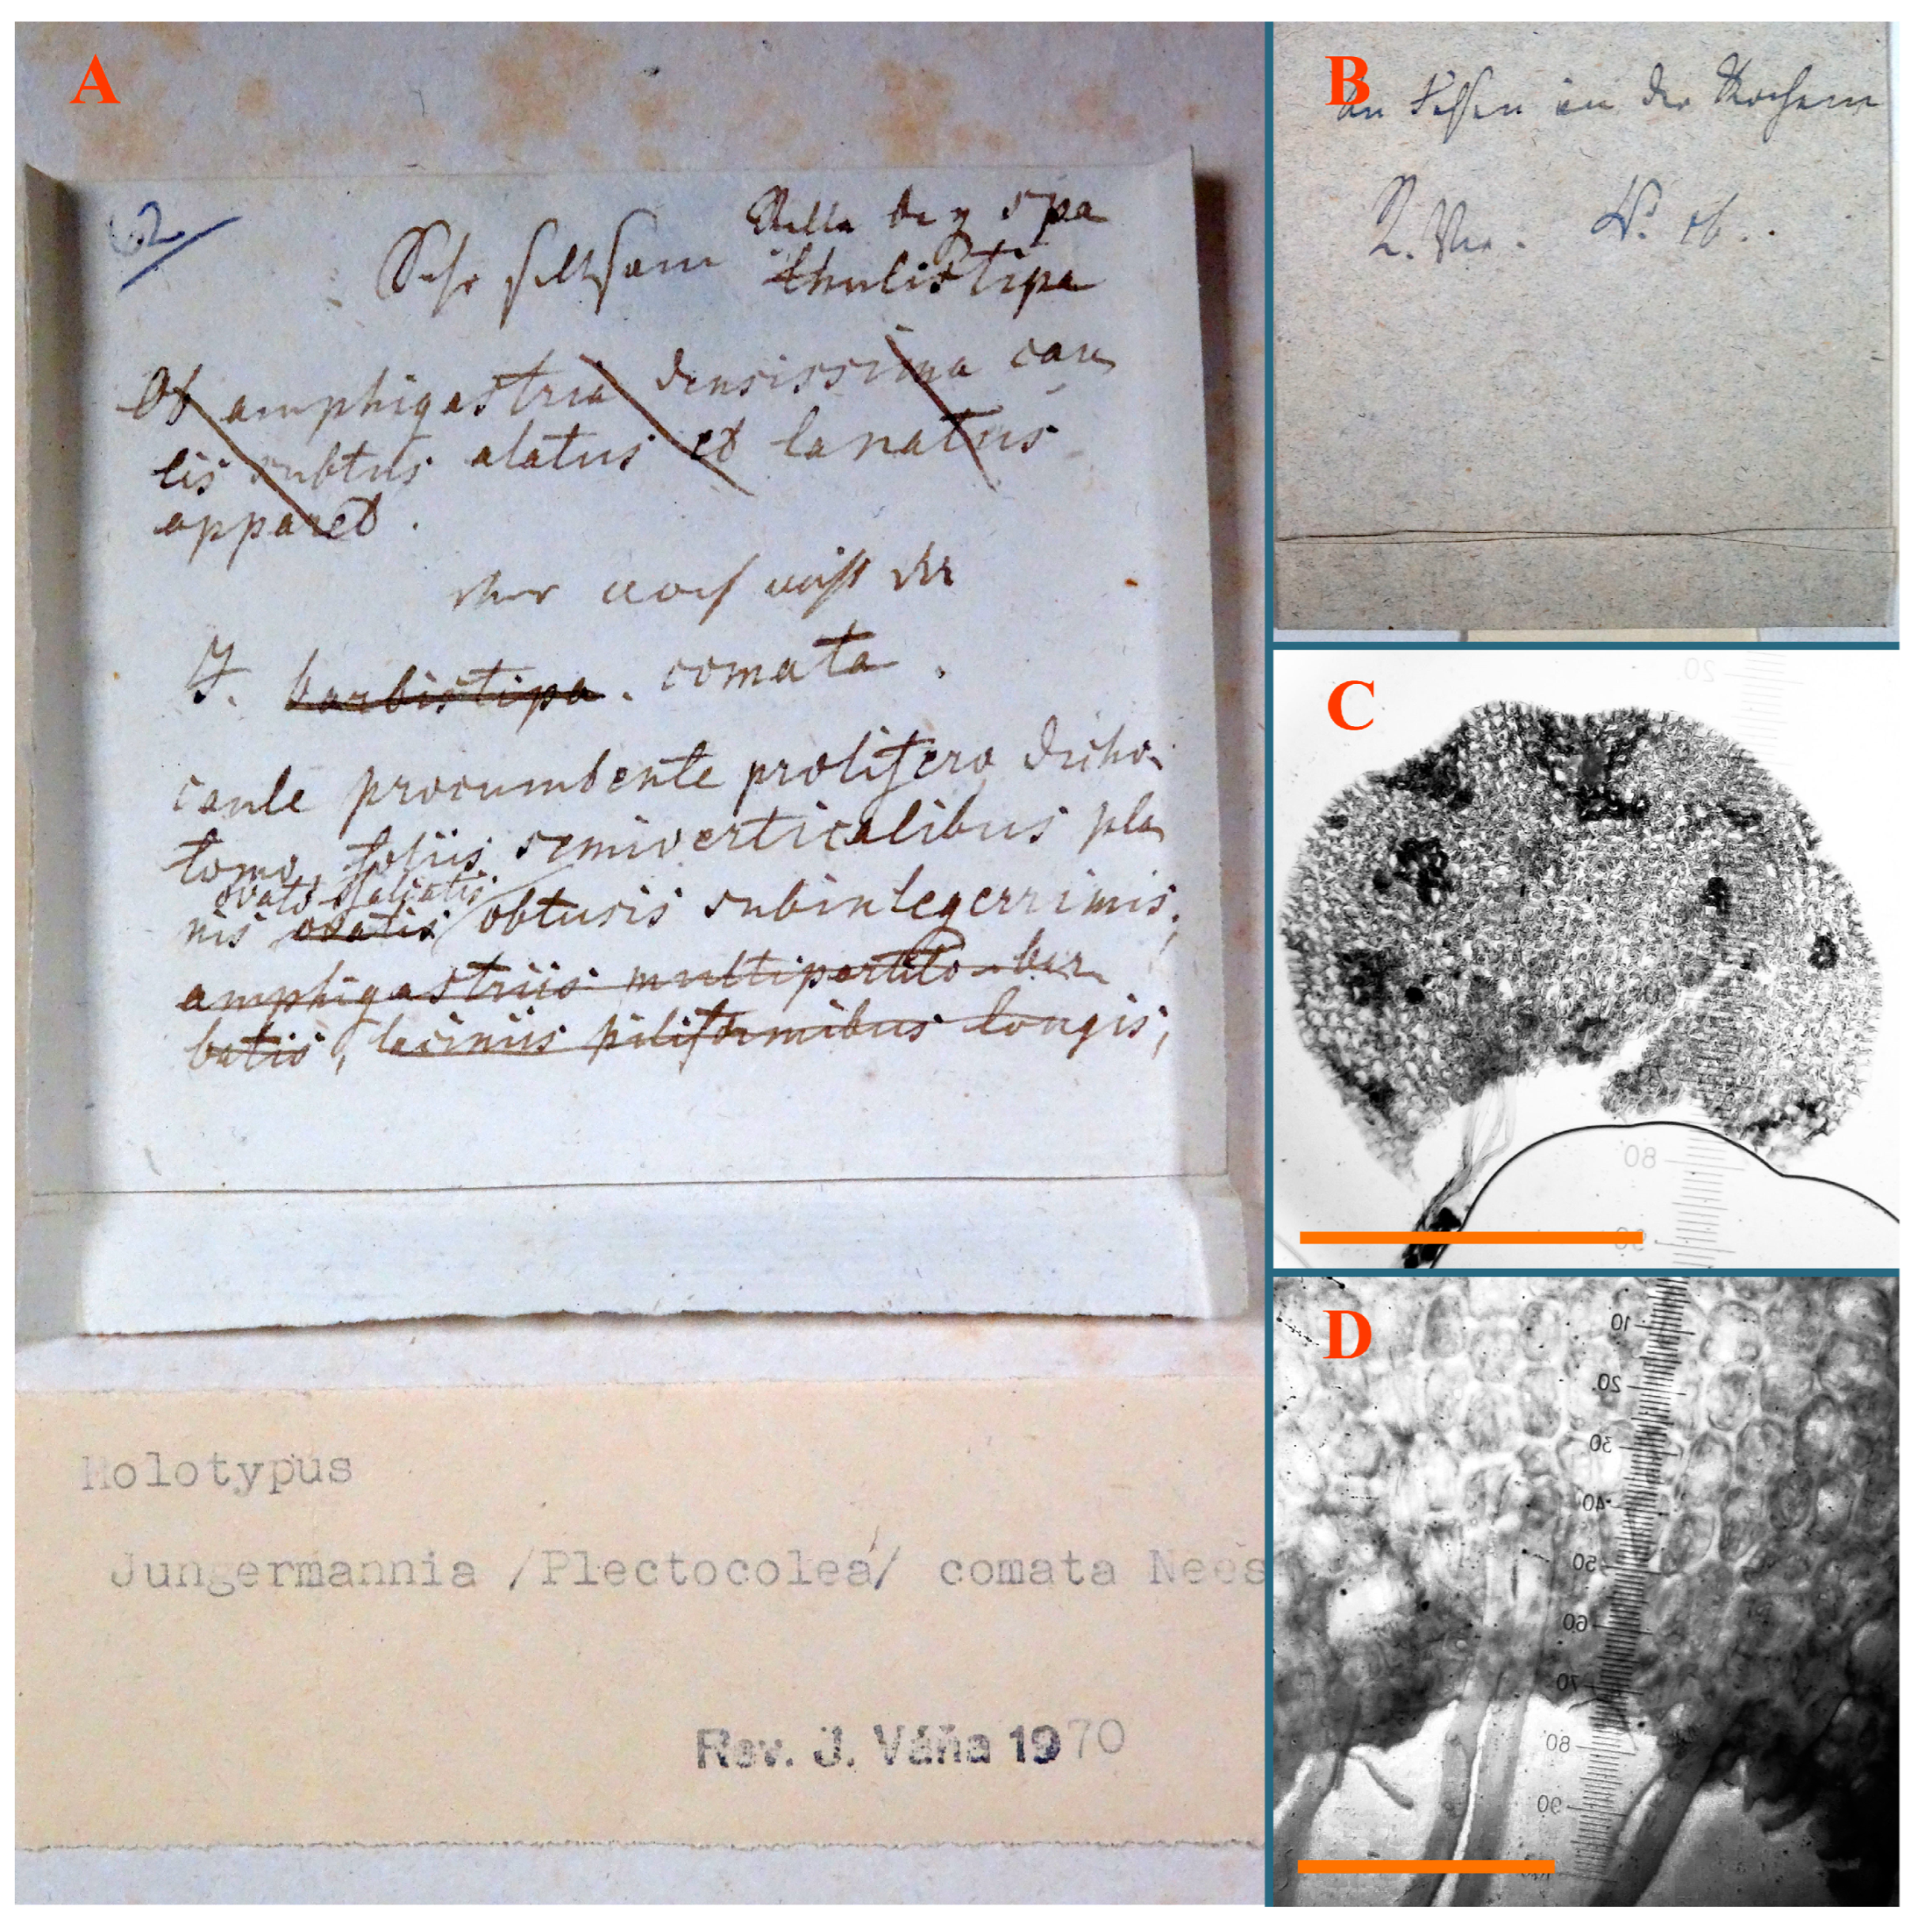 A
62
Sehr seltsam
thulistipa
Ob amphigastria densissima cau
lis subtus alatus et lanatus
apparet.
J. barbistipa. comata.
caule procumbente prolifero dicho-
tomo, foliis semiverticalibus pla
ovato
nis ovatis obtusis subintegerrimis,
amphigastriis multipartito-bar
batis, laciniis piliformibus longis,
Holotypus
Jungermannia /Plectocolea/ comata Nees
Rev. J. Váňa 1970
B
An Felsen in der
C
20
80
90
D
10
20
30
40
50
60
70
80
90